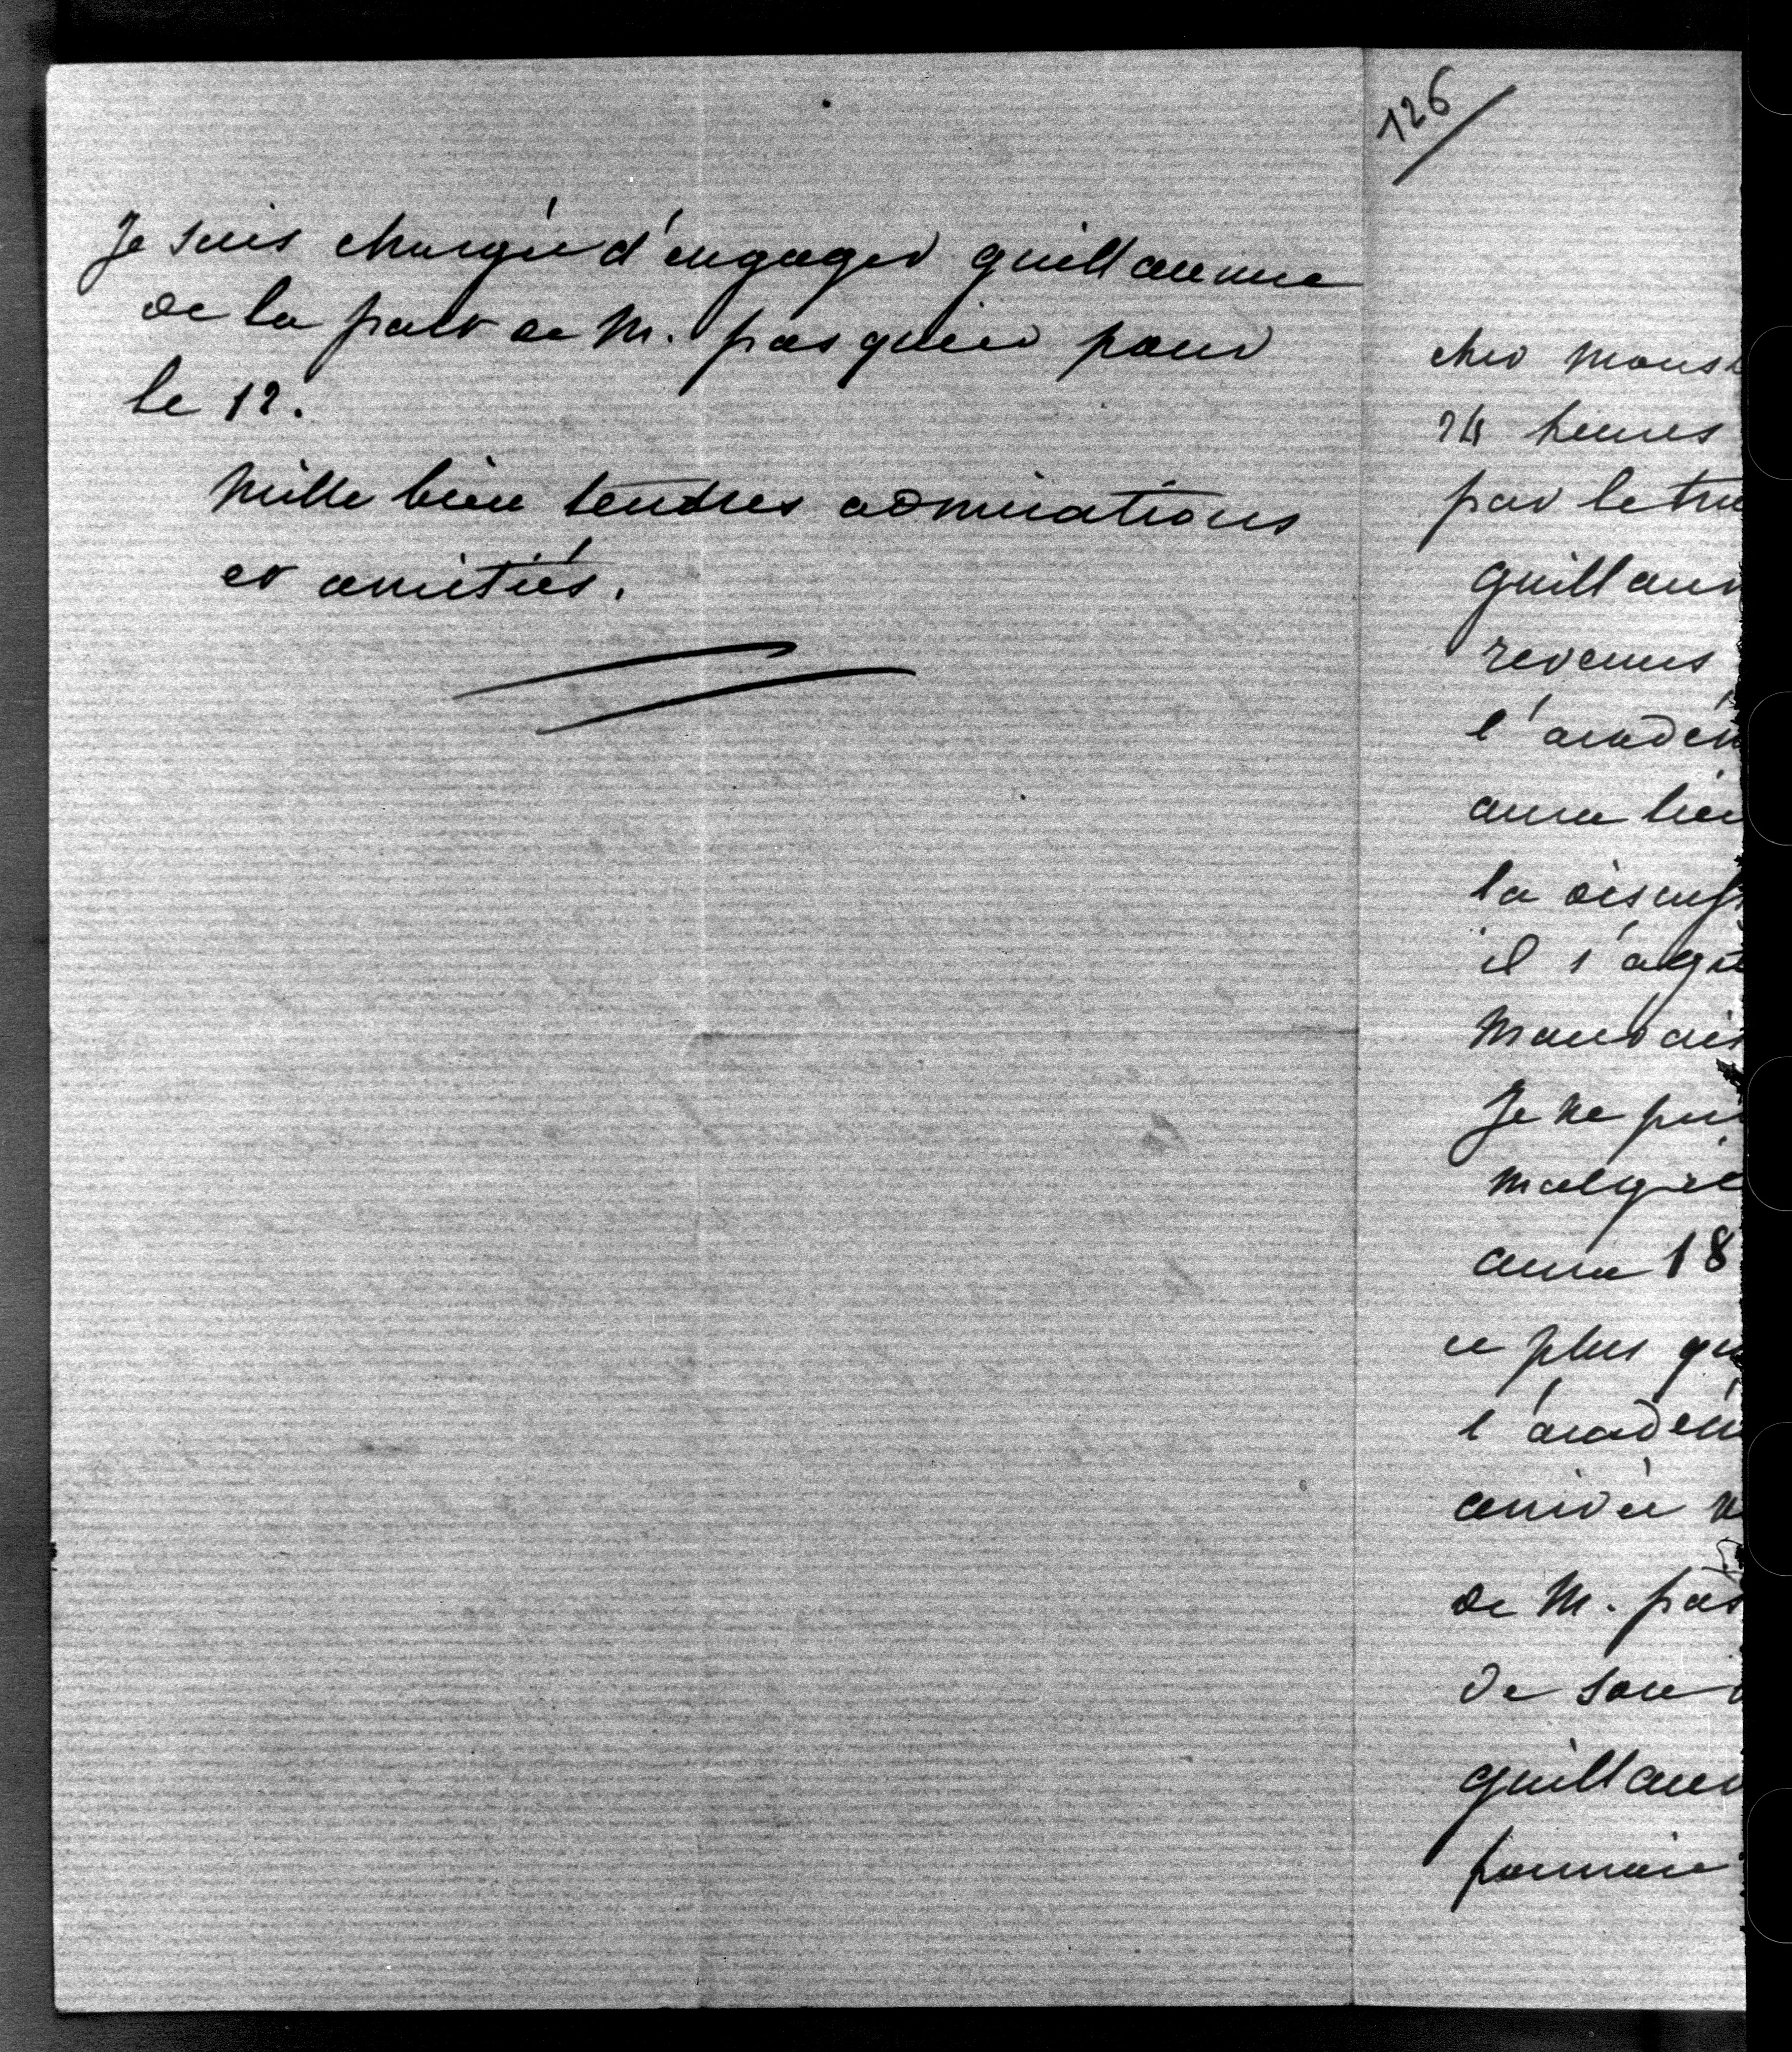 Je suis chargée d'engager guillaume
de la part de M. pasquier pour
le 12.
Mille bien tendres admirations
et amitiés.
126
cher Mons
24 heures
par le tra
guillaum
revenus
l'académ
aura lieu
la discuss
il s'agit
Mauvais
Je ne pui
malgré
aura 18
ce plus qu
l'académ
arrivée n
de M. pas
de son
guillaum
pourrai